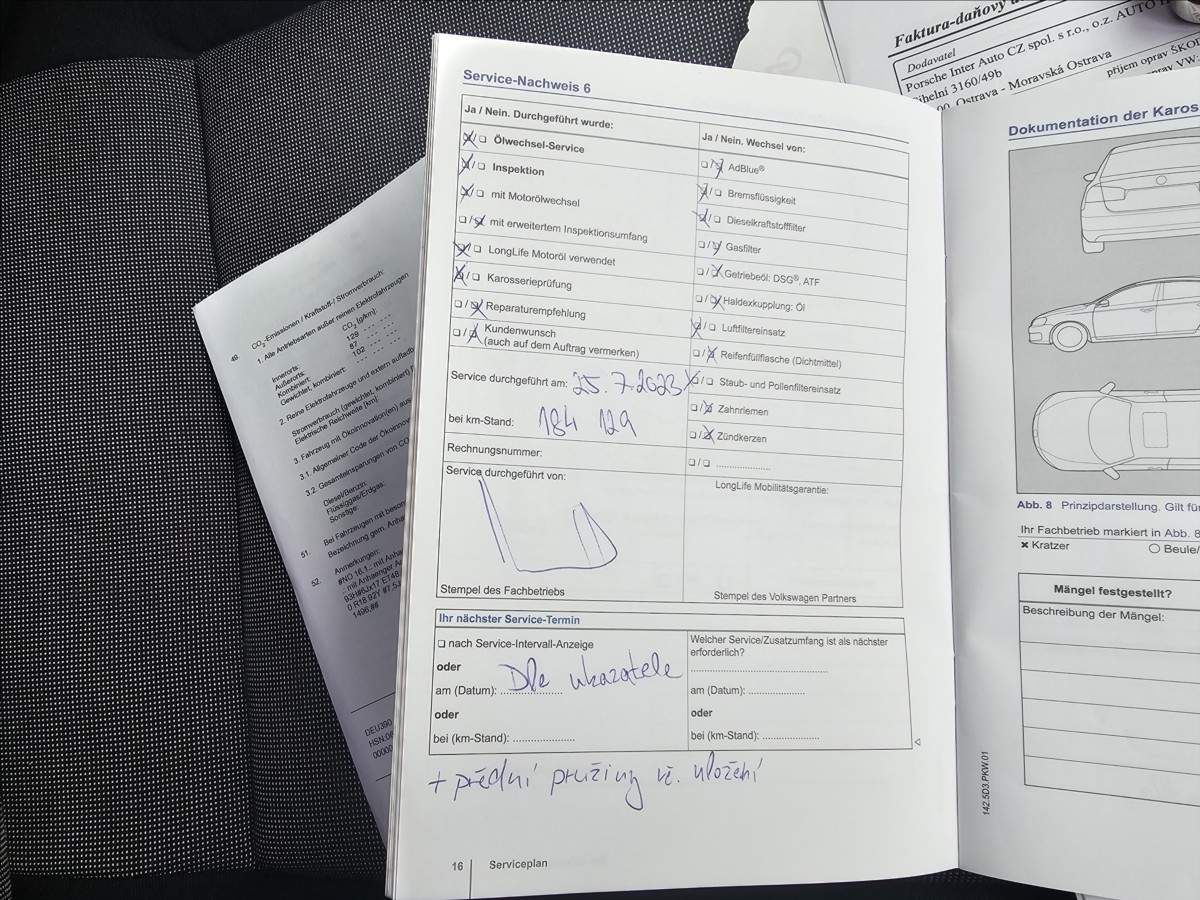 Faktura-daňový
Dodavatel
Porsche Inter Auto CZ spol. s r.o., o.z. AUTO
3160/49b
Ostrava - Moravská Ostrava
příjem oprav ŠKO
VW:
Service-Nachweis 6
Ja / Nein. Durchgeführt wurde:
☒/☐ Ölwechsel-Service
☒/☐ Inspektion
☒/☐ mit Motorölwechsel
☐/☒ mit erweitertem Inspektionsumfang
☒/☐ LongLife Motoröl verwendet
☒/☐ Karosserieprüfung
☐/☒ Reparaturempfehlung
☐/☒ Kundenwunsch
(auch auf dem Auftrag vermerken)
Service durchgeführt am: 25.7.2023
bei km-Stand: 184 129
Rechnungsnummer:
Service durchgeführt von:
Stempel des Fachbetriebs
Ja / Nein. Wechsel von:
☐/☒ AdBlue®
☒/☐ Bremsflüssigkeit
☒/☐ Dieselkraftstofffilter
☐/☒ Gasfilter
☐/☒ Getriebeöl: DSG®, ATF
☐/☒ Haldexkupplung: Öl
☒/☐ Luftfiltereinsatz
☐/☒ Reifenfüllflasche (Dichtmittel)
☒/☐ Staub- und Pollenfiltereinsatz
☐/☒ Zahnriemen
☐/☒ Zündkerzen
☐/☐ ....................
LongLife Mobilitätsgarantie:
Stempel des Volkswagen Partners
Ihr nächster Service-Termin
☐ nach Service-Intervall-Anzeige
oder
am (Datum): Dle ukazatele
oder
bei (km-Stand): ....................
Welcher Service/Zusatzumfang ist als nächster
erforderlich?
am (Datum): ..................
oder
bei (km-Stand): ..................
+ přední pružiny vč. uložení
16 Serviceplan
Dokumentation der Karos
Abb. 8 Prinzipdarstellung. Gilt für
Ihr Fachbetrieb markiert in Abb. 8
✖ Kratzer ○ Beule/
Mängel festgestellt?
Beschreibung der Mängel:
142.5D3.PKW.01
49. CO₂-Emissionen / Kraftstoff-/ Stromverbrauch:
1. Alle Antriebsarten außer reinen Elektrofahrzeugen
CO₂ [g/km]
Innerorts: 129
Außerorts: 87
Kombiniert: 102
Gewichtet, kombiniert:
2. Reine Elektrofahrzeuge und extern aufladb
Stromverbrauch (gewichtet, kombiniert)
Elektrische Reichweite [km]
3. Fahrzeug mit Ökoinnovation(en) aus
3.1. Allgemeiner Code der Ökoinnov
3.2. Gesamteinsparungen von CO
Diesel/Benzin:
Flüssiggas/Erdgas:
Sonstige:
51. Bei Fahrzeugen mit beson
Bezeichnung gem. Anha
52. Anmerkungen:
#NO 16.1.: mit Anha
.: mit Anhaenger A
93H#6Jx17 ET48
0 R18 92Y #7,5J
1496;##
DEU390
HSN.06
00000